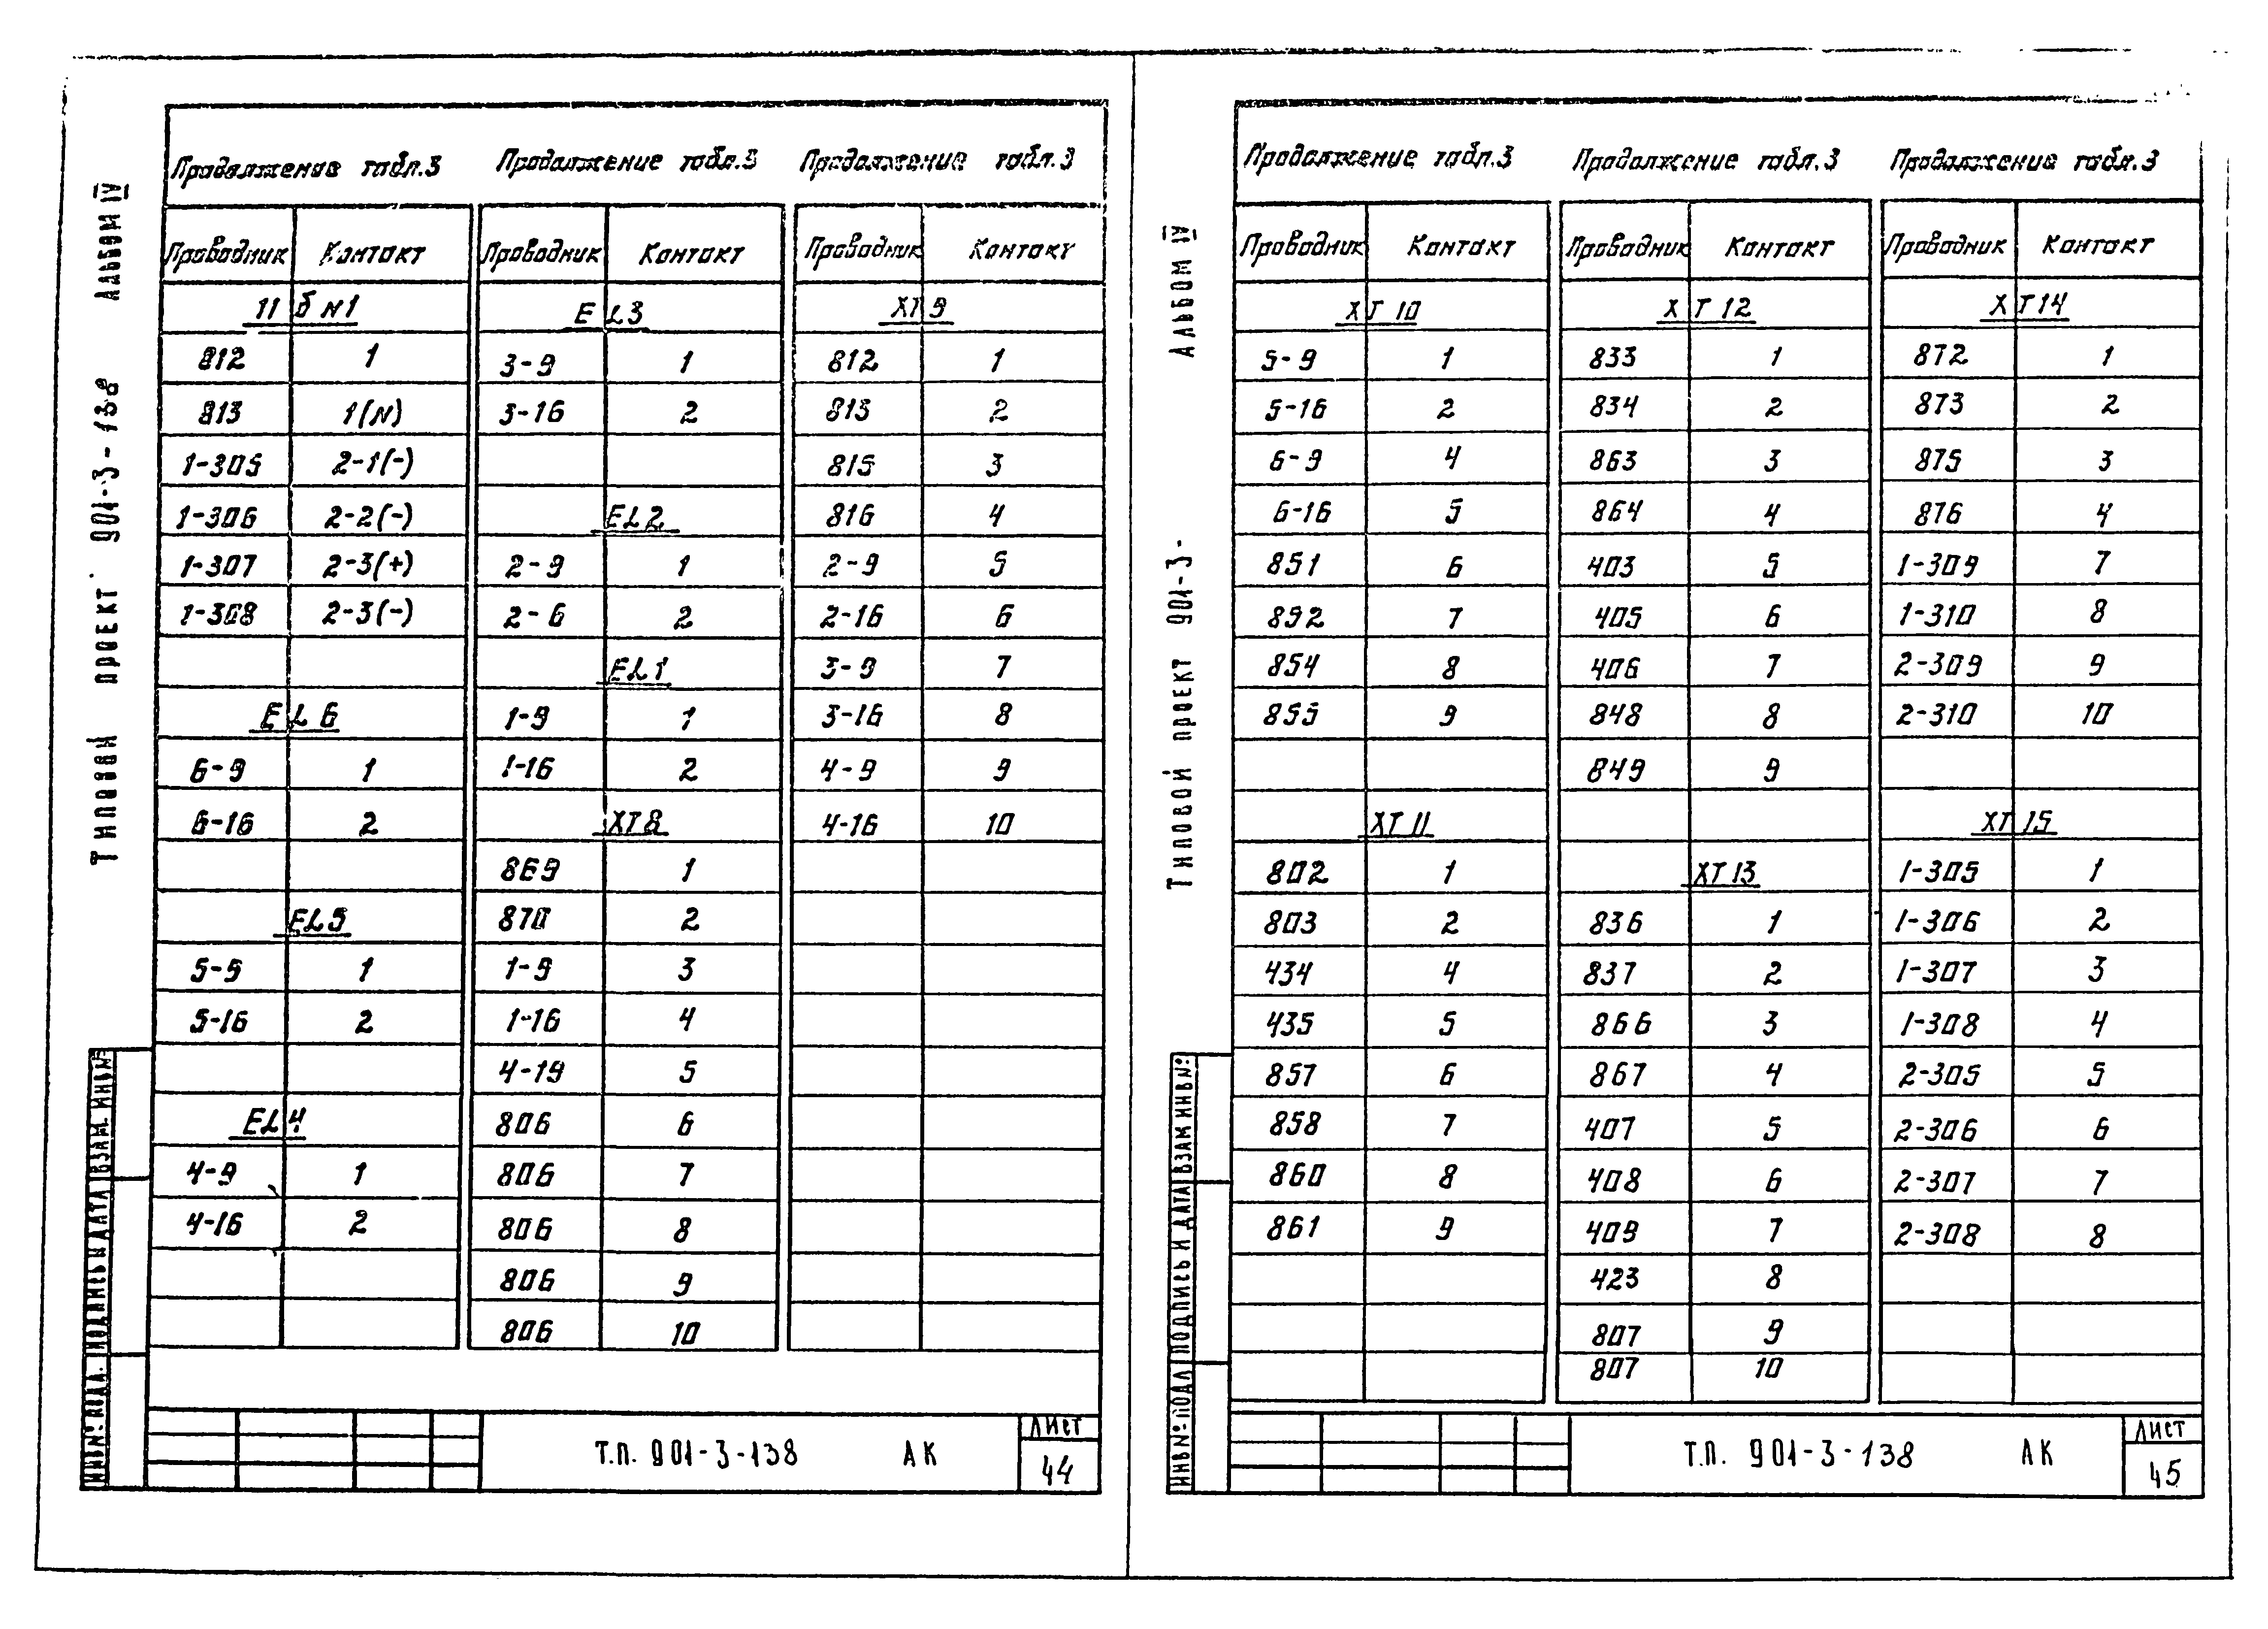 Альбом IV
Типовой проект 901-3-138
Продолжение табл.3
Проводник Контакт
11 б N1
812 1
813 1(N)
1-305 2-1(-)
1-306 2-2(-)
1-307 2-3(+)
1-308 2-3(-)
EL6
6-9 1
6-16 2
EL5
5-9 1
5-16 2
EL4
4-9 1
4-16 2
Продолжение табл.3
Проводник Контакт
EL3
3-9 1
3-16 2
EL2
2-9 1
2-6 2
EL1
1-9 1
1-16 2
XT8
869 1
870 2
1-9 3
1-16 4
4-19 5
806 6
806 7
806 8
806 9
806 10
Продолжение табл.3
Проводник Контакт
XT9
812 1
813 2
815 3
816 4
2-9 5
2-16 6
3-9 7
3-16 8
4-9 9
4-16 10
ИНВ№ ПОДЛ. ПОДПИСЬ И ДАТА ВЗАМ. ИНВ№
Т.П. 901-3-138 АК
Лист
44
Альбом IV
Типовой проект 901-3-
Продолжение табл.3
Проводник Контакт
XT10
5-9 1
5-16 2
6-9 4
6-16 5
851 6
892 7
854 8
855 9
XT11
802 1
803 2
434 4
435 5
857 6
858 7
860 8
861 9
Продолжение табл.3
Проводник Контакт
XT12
833 1
834 2
863 3
864 4
403 5
405 6
406 7
848 8
849 9
XT13
836 1
837 2
866 3
867 4
407 5
408 6
409 7
423 8
807 9
807 10
Продолжение табл.3
Проводник Контакт
XT14
872 1
873 2
875 3
876 4
1-309 7
1-310 8
2-309 9
2-310 10
XT15
1-305 1
1-306 2
1-307 3
1-308 4
2-305 5
2-306 6
2-307 7
2-308 8
ИНВ№ ПОДЛ ПОДПИСЬ И ДАТА ВЗАМ ИНВ№
Т.П. 901-3-138 АК
Лист
45